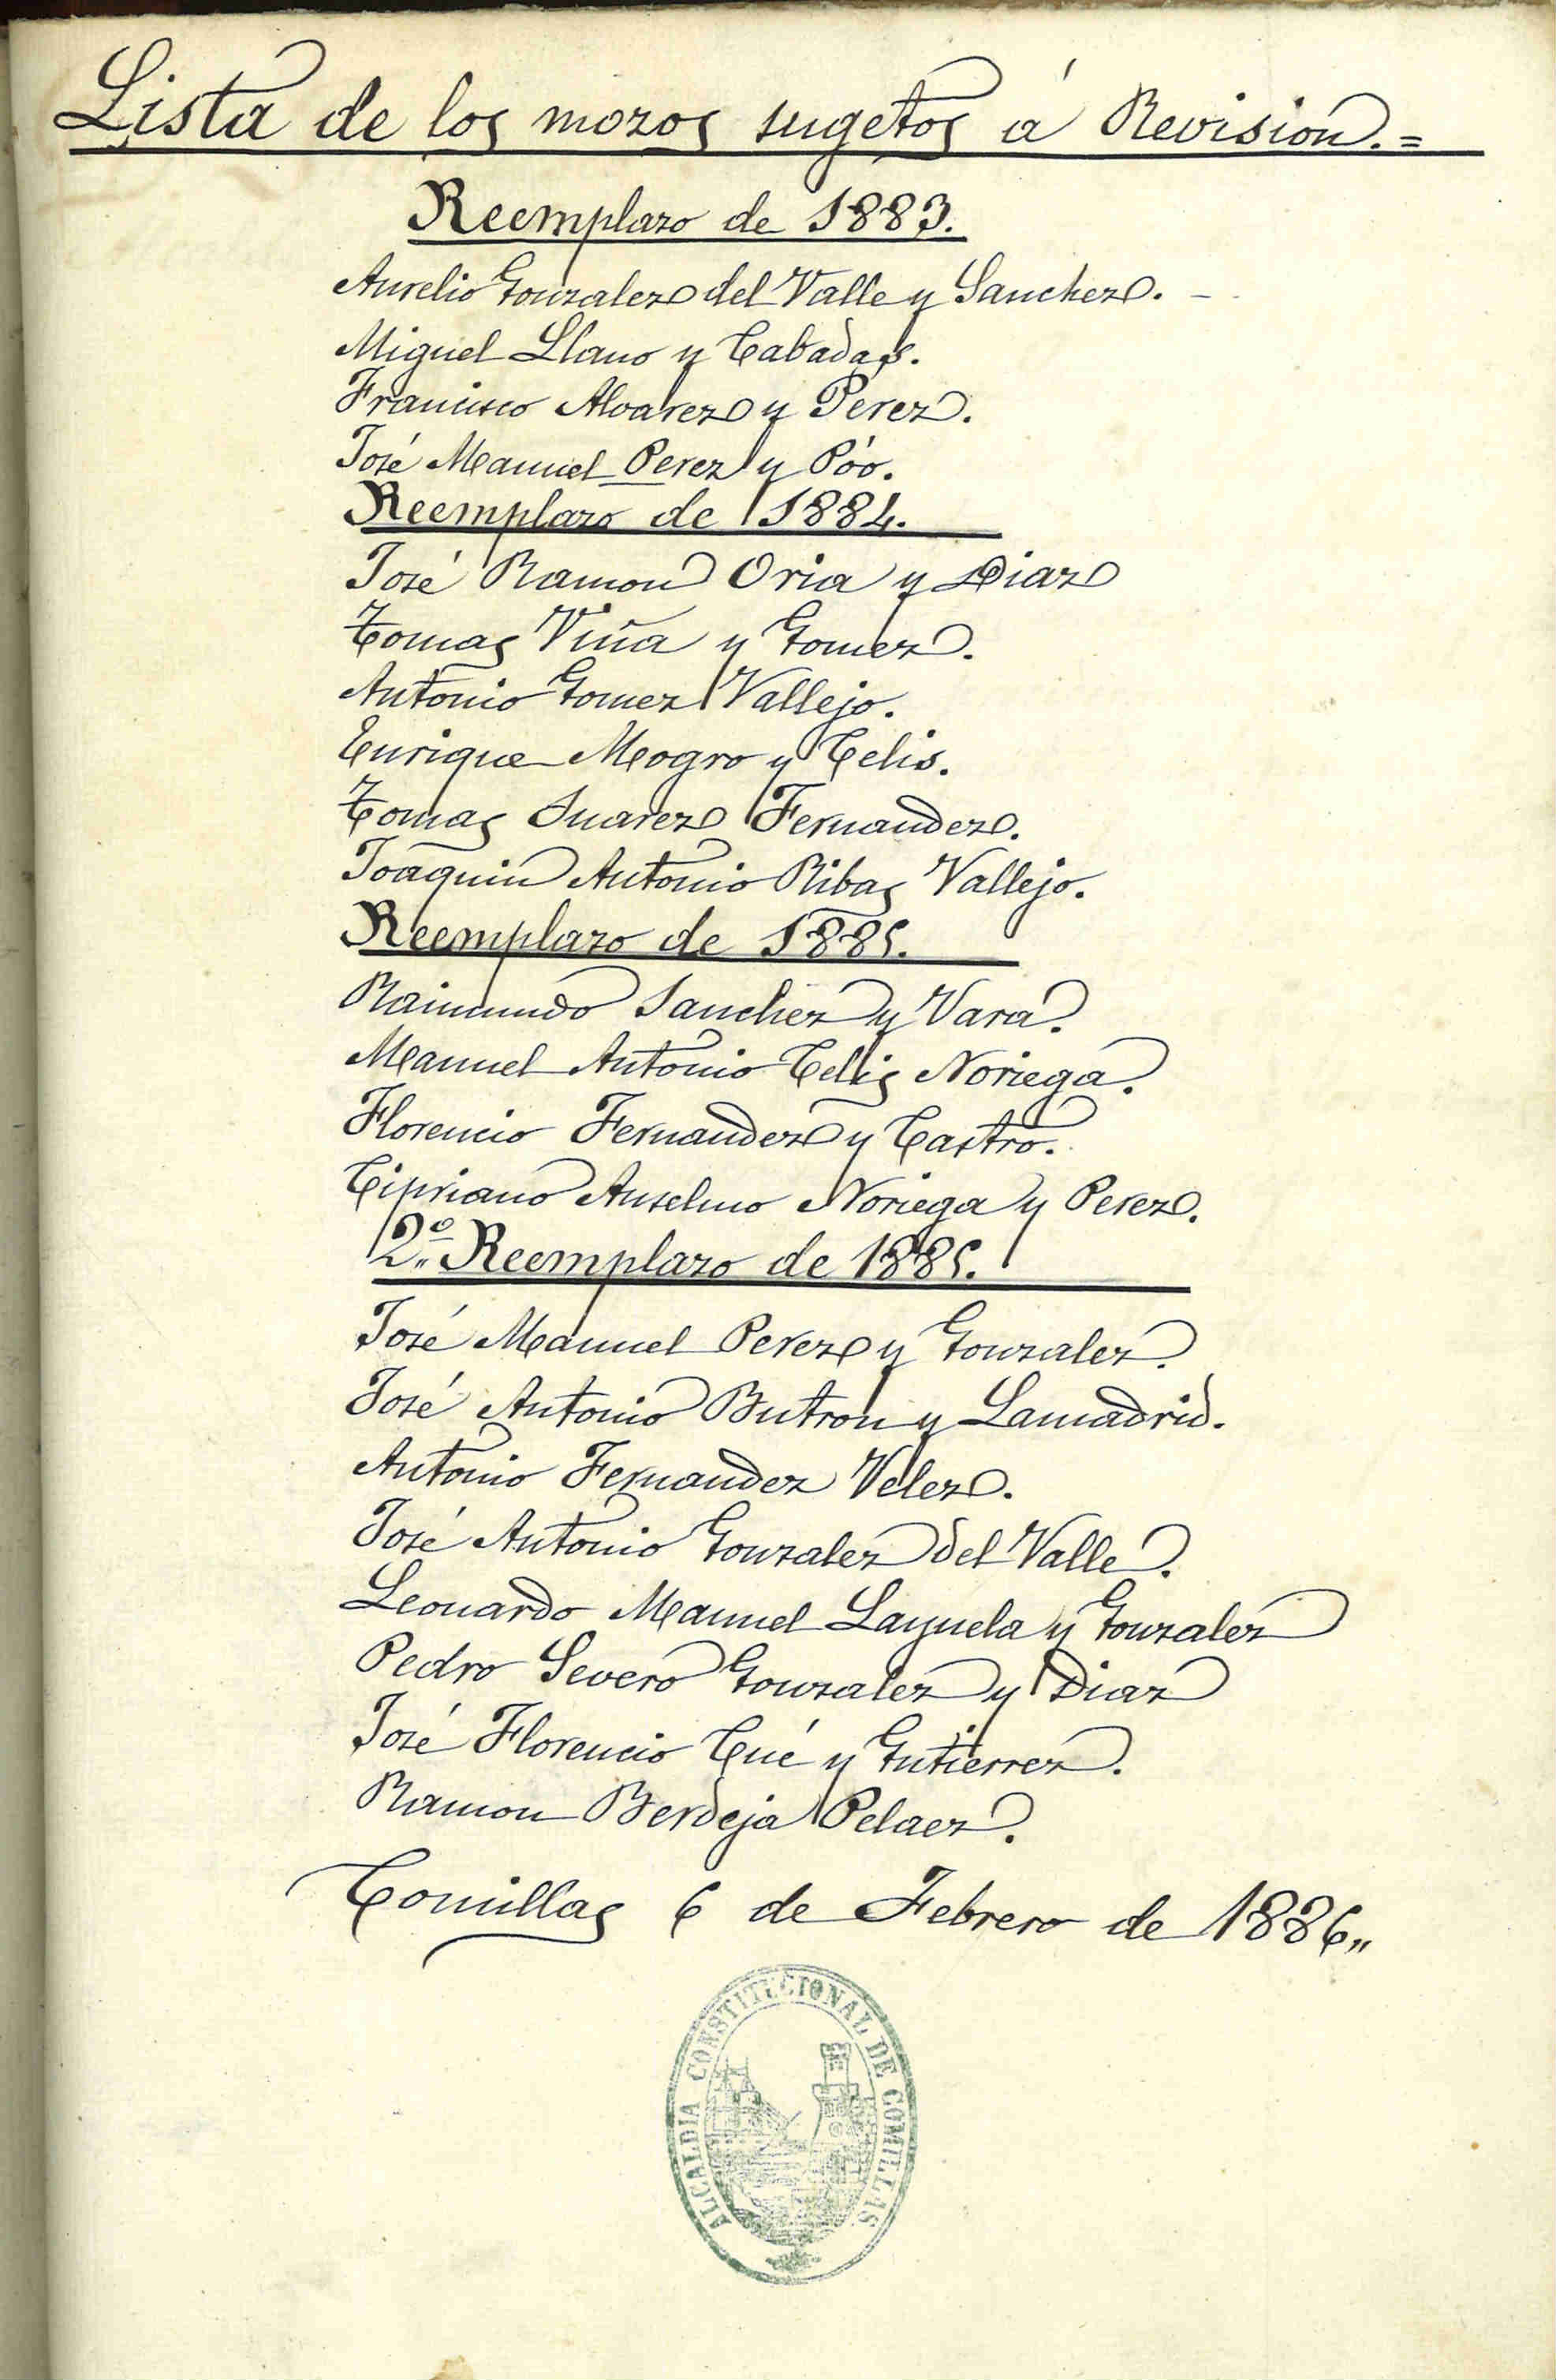 Lista de los mozos sugetos á Revision.=
Reemplazo de 1883.
Aurelio Gonzalez del Valle y Sanchez. -
Miguel Llano y Cabadas.
Francisco Alvarez y Perez.
José Manuel Perez y Póo.
Reemplazo de 1884.
José Ramon Oria y Diaz
Tomas Viña y Gomez.
Antonio Gomez Vallejo.
Enrique Mogro y Celis.
Tomas Suarez Fernandez.
Joaquin Antonio Ribas Vallejo.
Reemplazo de 1885.
Raimundo Sanchez y Vara.
Manuel Antonio Celis Noriega.
Florencio Fernandez y Castro.
Cipriano Anselmo Noriega y Perez.
2º Reemplazo de 1885.
José Manuel Perez y Gonzalez.
José Antonio Butron y Lamadrid.
Antonio Fernandez Velez.
José Antonio Gonzalez del Valle.
Leonardo Manuel Layuela y Gonzalez
Pedro Severo Gonzalez y Diaz
José Florencio Cué y Gutierrez.
Ramon Berdeja Pelaez.
Comillas 6 de Febrero de 1886„
ALCALDIA CONSTITUCIONAL DE COMILLAS